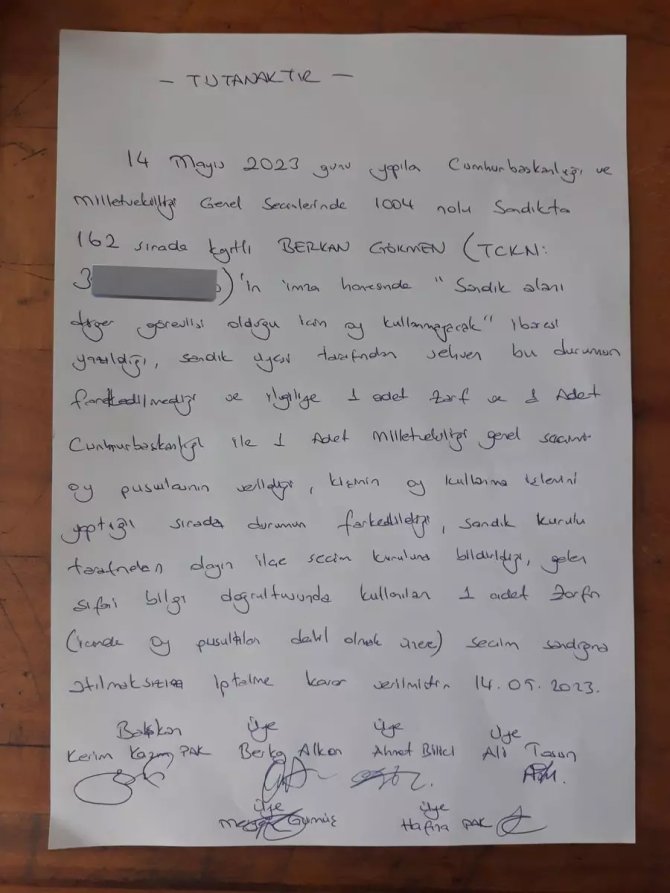 - TUTANAKTIR -
14 Mayıs 2023 günü yapıla Cumhurbaşkanlığı ve
Milletvekilliği Genel Seçimlerinde 1004 nolu Sandıkta
162 sırada kayıtlı BERKAN GÖKMEN (TCKN:
3 )'in imza hanesinde "Sandık alanı
diğer görevlisi olduğu için oy kullanmayacak" ibaresi
yazıldığı, sandık üyesi tarafından sehven bu durumun
farkedilmediği ve ilgiliye 1 adet zarf ve 1 Adet
Cumhurbaşkanlığı ile 1 Adet Milletvekilliği genel seçimi
oy pusulasının verildiği, kişinin oy kullanma işlemini
yaptığı sırada durumun farkedildiği, sandık kurulu
tarafından ilçe seçim kuruluna bildirildiği, gelen
şifai bilgi doğrultusunda kullanılan 1 adet zarfın
(içinde oy pusulaları dahil olmak üzere) seçim sandığına
atılmaksızın iptaline karar verilmiştir. 14.05.2023.
Başkan Üye Üye Üye
Kerim Kazım PAK Berka Alkan Ahmet Billel Ali
Üye Üye
Gümüş Hafıza PAK